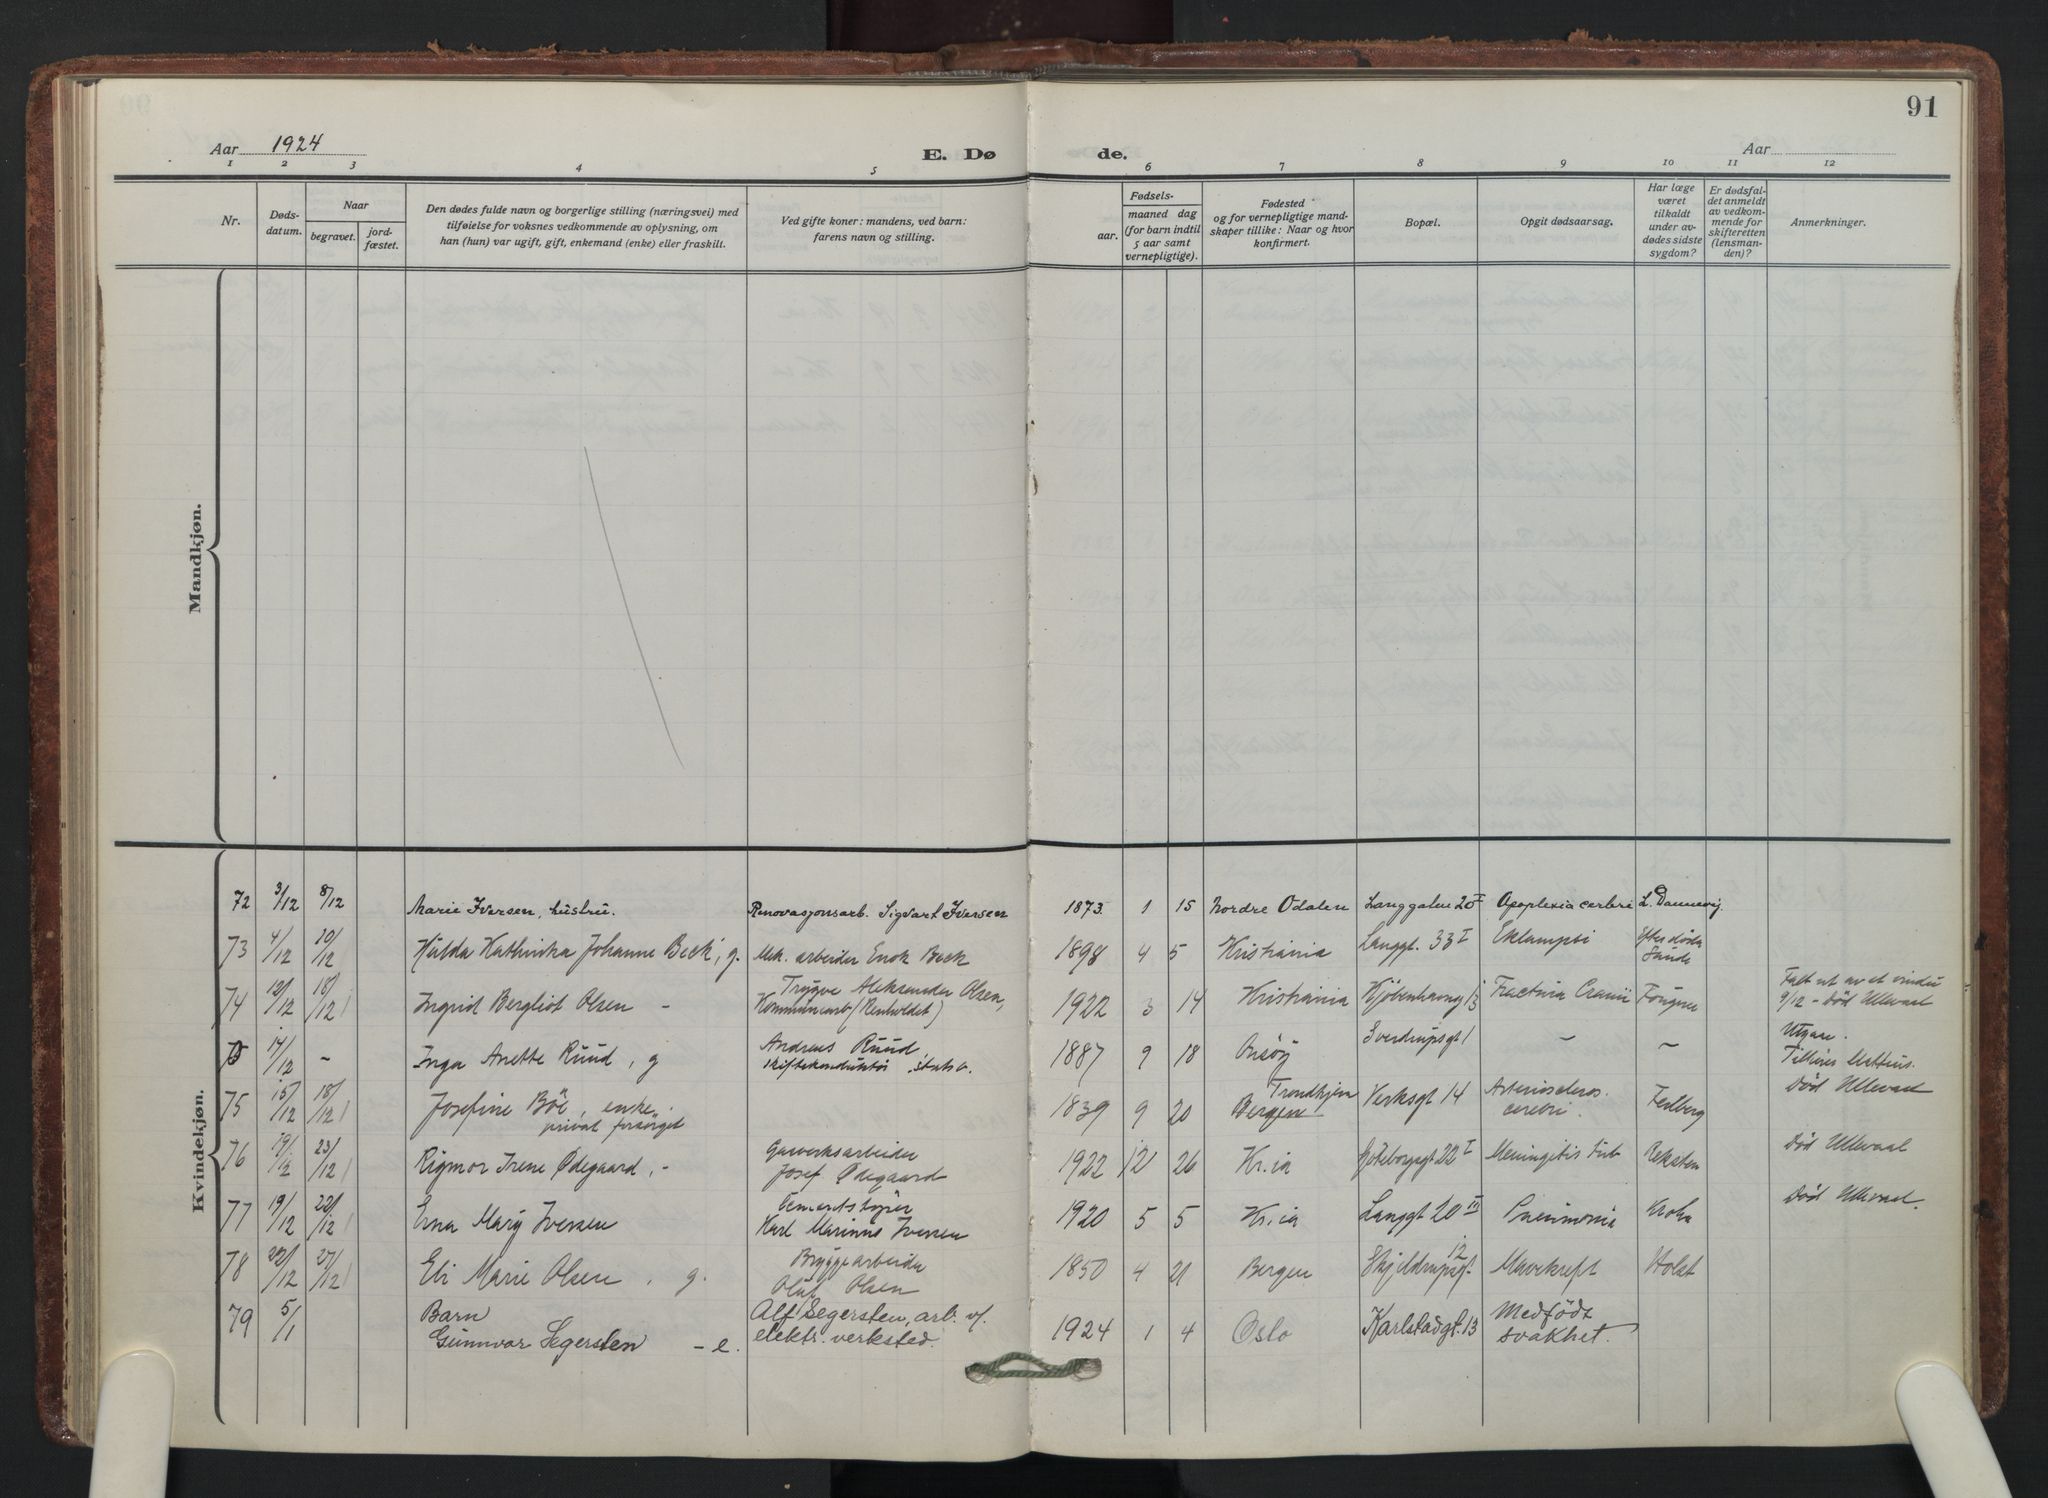 91
Aar 1924
E. Dø
de.
Aar
1 2 3 4 5 6 7 8 9 10 11 12
Nr.
Døds-
datum.
Naar
begravet.
jord-
fæstet.
Den dødes fulde navn og borgerlige stilling (næringsvei) med
tilføielse for voksnes vedkommende av oplysning, om
han (hun) var ugift, gift, enkemand (enke) eller fraskilt.
Ved gifte koner: mandens, ved barn:
farens navn og stilling.
Fødsels-
aar.
maaned dag
(for barn indtil
5 aar samt
vernepligtige).
Fødested
og for vernepligtige mand-
skaper tillike: Naar og hvor
konfirmert.
Bopæl.
Opgit dødsaarsag.
Har læge
været
tilkaldt
under av-
dødes sidste
sygdom?
Er dødsfal-
det anmeldt
av vedkom-
mende for
skifteretten
(lensman-
den)?
Anmerkninger.
Mandkjøn.
Kvindekjøn.
72 3/12 8/12 Marie Iversen, hustru. Renovasjonsarb. Sigvart Iversen 1873. 1 15 Nordre Odalen Langgaten 20 I Apoplexia cerebri L. Dannevig.
73 4/12 10/12 Hulda Kathinka Johanne Beck, g. Mek. arbeider Enok Beck 1898 4 5 Kristiania Langgt. 33 I Eklampsi
74 12/12 18/12 Ingrid Bergliot Olsen - Trygve Aleksander Olsen,
Kommunearb (Renholdet) 1922 3 14 Kristiania Kjøbenhavng 13 Fractura Cranii Fougner Falt ut av et vindu
9/12 - Død Ullevaal
14/12 - Inga Anette Ruud, g Andreas Ruud, 1887 9 18 Onsøy Sverdrupsgt 1 - - Utgaar.
75 15/12 18/12 Josefine Böe, enke.
privat forsørget 1839 9 20 Trondhjem
Bergen Verksgt 14 Arterioscleros.
cerebri. Fedberg Död Ullevaal
76 19/12 23/12 Rigmor Irene Ødegaard, - Gasverksarbeider
Josef Ødegaard 1922 12 26 Kr.ia Gøteborggt 22 I Meningitis tub Reksten Död Ullevaal
77 19/12 22/12 Erna Mary Iversen Cementstøper
Karl Marinus Iversen 1920 5 5 Kr.ia Langgt 20 III Pneumonia Krohn Död Ullevaal.
78 22/12 27/12 Eli Marie Olsen, g. Bryggearbeider
Oluf Olsen 1850 4 21 Bergen Skjeldrupsgt. 12 Mavekreft Holst
79 5/1 Barn
Gunnvor Segersten - e. Alf Segersten, arb. v/
elektr. verksted. 1924 1 4 Oslo Karlstadgt. 13 Medfödt
svakhet.